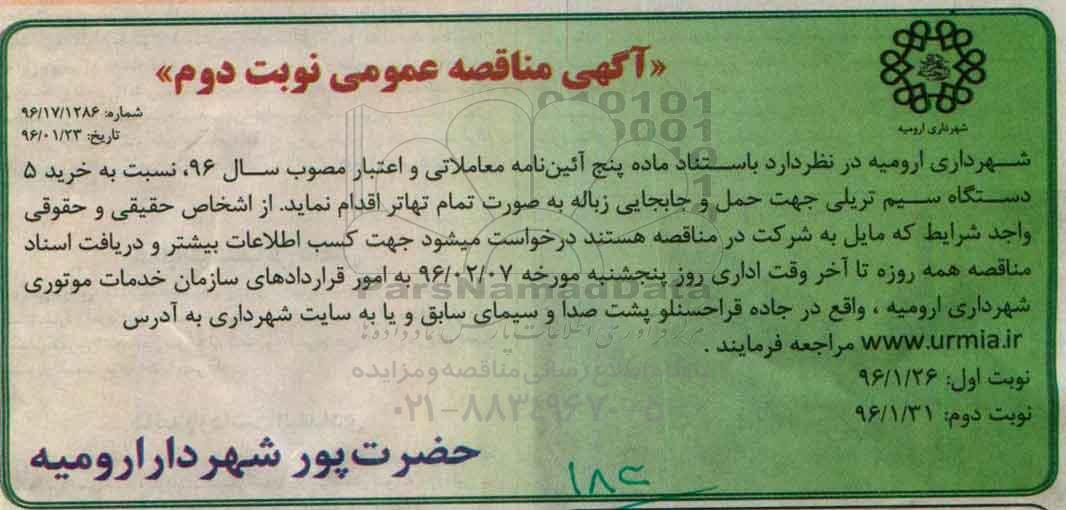 «آگهی مناقصه عمومی نوبت دوم»
شهرداری ارومیه
شماره: ۹۶/۱۷/۱۲۸۶
تاریخ: ۹۶/۰۱/۲۳
شهرداری ارومیه در نظردارد باستناد ماده پنج آئین‌نامه معاملاتی و اعتبار مصوب سال ۹۶، نسبت به خرید ۵
دستگاه سیم تریلی جهت حمل و جابجایی زباله به صورت تمام تهاتر اقدام نماید. از اشخاص حقیقی و حقوقی
واجد شرایط که مایل به شرکت در مناقصه هستند درخواست میشود جهت کسب اطلاعات بیشتر و دریافت اسناد
مناقصه همه روزه تا آخر وقت اداری روز پنجشنبه مورخه ۹۶/۰۲/۰۷ به امور قراردادهای سازمان خدمات موتوری
شهرداری ارومیه ، واقع در جاده قراحسنلو پشت صدا و سیمای سابق و یا به سایت شهرداری به آدرس
www.urmia.ir مراجعه فرمایند .
نوبت اول: ۹۶/۱/۲۶
نوبت دوم: ۹۶/۱/۳۱
حضرت‌پور شهردارارومیه
ParsNamadData
پایگاه اطلاع رسانی مناقصه و مزایده
۰۲۱-۸۸۳۴۹۶۷۰-۵